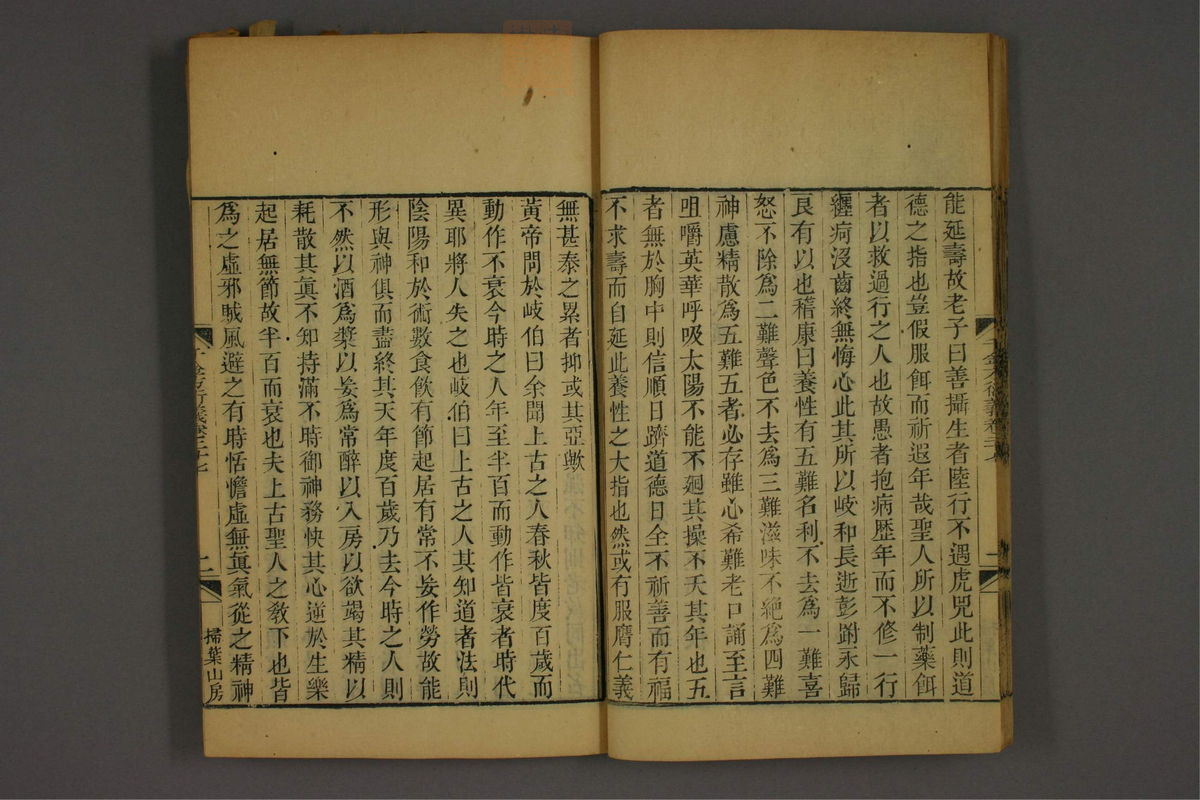 能延壽故老子曰善攝生者陸行不遇虎兕此則道
德之指也豈假服餌而祈遐年哉聖人所以制藥餌
者以救過行之人也故愚者抱病歴年而不修一行
纏疴没齒終無悔心此其所以岐和長逝彭跗永歸
良有以也嵇康曰養性有五難名利不去爲一難喜
怒不除爲二難聲色不去爲三難滋味不絶爲四難
神慮精散爲五難五者必存雖心希難老口誦至言
咀嚼英華呼吸太陽不能不廻其操不夭其年也五
者無於胸中則信順日躋道德日全不祈善而有福
不求壽而自延此養性之大指也然或有服膺仁義
無甚泰之累者抑或其亞歟
黄帝問於岐伯曰余聞上古之人春秋皆度百歲而
動作不衰今時之人年至半百而動作皆衰者時代
異耶將人失之也岐伯曰上古之人其知道者法則
陰陽和於術數食飲有節起居有常不妄作勞故能
形與神俱而盡終其天年度百歲乃去今時之人則
不然以酒爲漿以妄爲常醉以入房以欲竭其精以
耗散其眞不知持滿不時御神務快其心逆於生樂
起居無節故半百而衰也夫上古聖人之教下也皆
爲之虛邪賊風避之有時恬憺虛無眞氣從之精神
千金方衍義卷二十七
二
掃葉山房